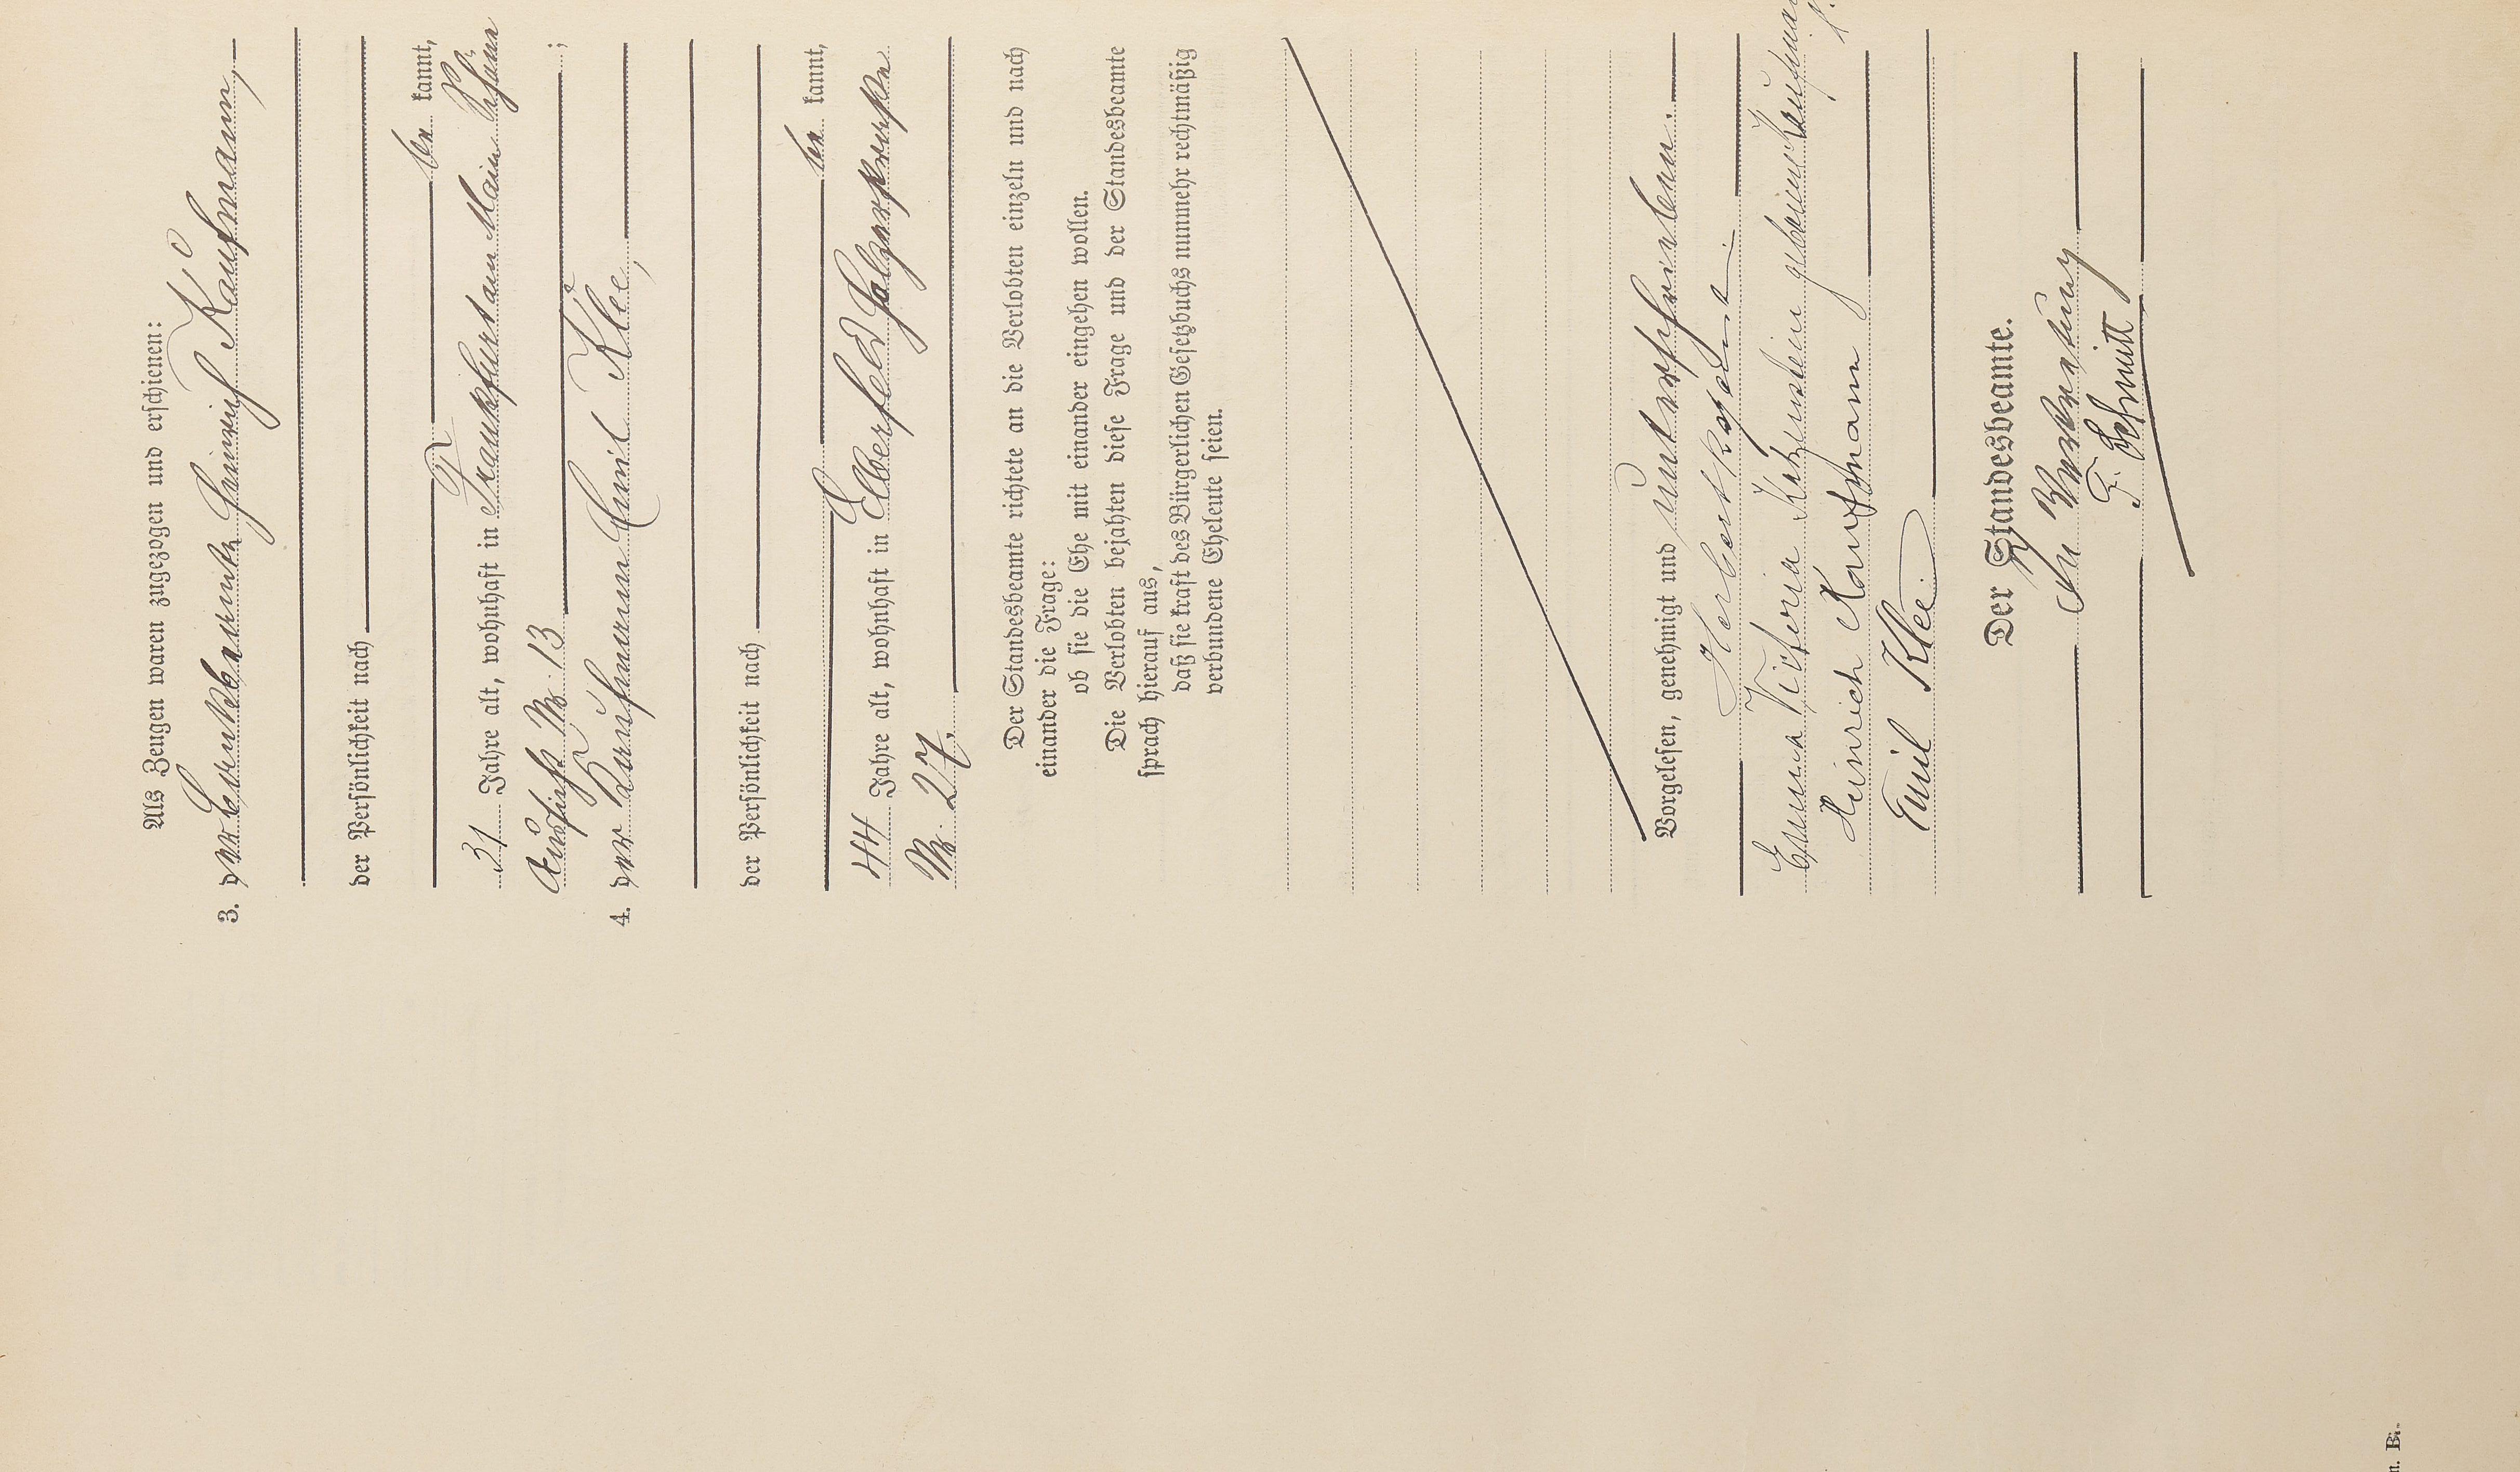 Als Zeugen waren zugezogen und erschienen:
3. der Bankbeamte Heinrich Kaufmann,
der Persönlichkeit nach
be kannt,
31 Jahre alt, wohnhaft in Frankfurt am Main
№ 13 ;
4. der Kaufmann Emil Klee,
der Persönlichkeit nach
be kannt,
44 Jahre alt, wohnhaft in Elberfeld Holzerstraße
№ 27.
Der Standesbeamte richtete an die Verlobten einzeln und nach
einander die Frage:
ob sie die Ehe mit einander eingehen wollen.
Die Verlobten bejahten diese Frage und der Standesbeamte
sprach hierauf aus,
daß sie kraft des Bürgerlichen Gesetzbuchs nunmehr rechtmäßig
verbundene Eheleute seien.
Vorgelesen, genehmigt und unterschrieben.
Herbert
Emma Victoria Katzenstein geborene Kaufmann
Heinrich Kaufmann
Emil Klee.
Der Standesbeamte.
In Vertretung
F. Schmitt
Bi.